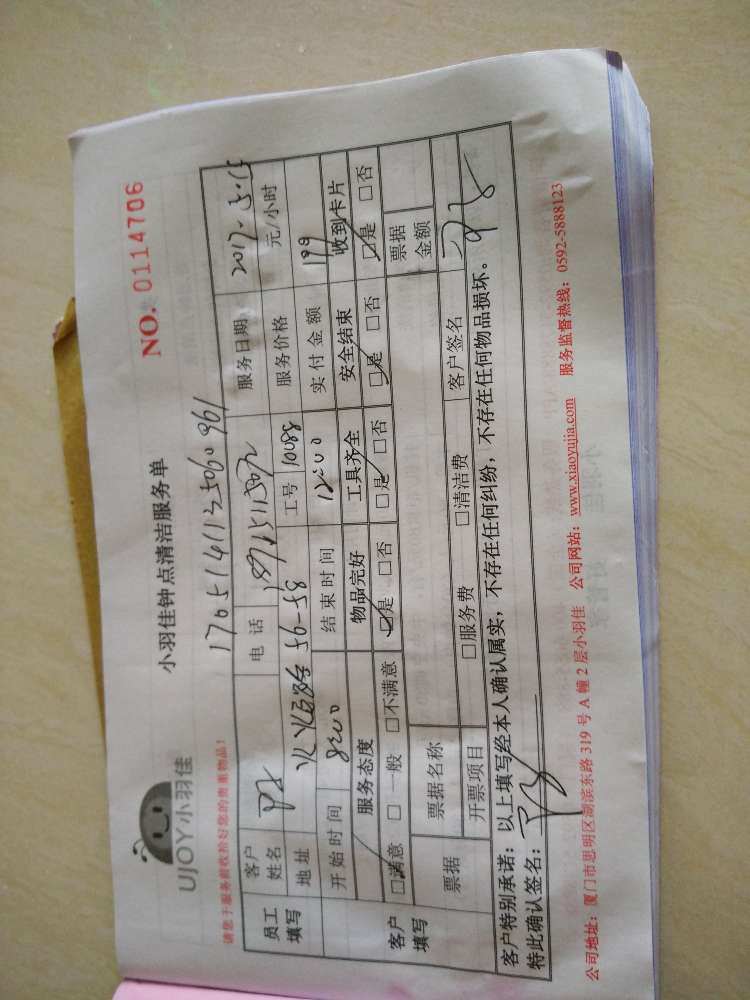 UJOY小羽佳
小羽佳钟点清洁服务单
NO. 0114706
请您于服务前收拾好您的贵重物品!
1705141135060961
员工填写 客户姓名 电话 服务日期 2017.5.15
地址 56-58 工号 10088 服务价格 元/小时
开始时间 8:00 结束时间 12:00 实付金额 199
客户填写 服务态度 物品完好 工具齐全 安全结束 收到卡片
□满意 □一般 □不满意 □是 □否 □是 □否 □是 □否 □是 □否
票据 票据名称 票据金额
开票项目 □服务费 □清洁费 客户签名
客户特别承诺:以上填写经本人确认属实,不存在任何纠纷,不存在任何物品损坏。
特此确认签名:
公司地址:厦门市思明区湖滨东路 319 号 A 幢 2 层小羽佳 公司网站:www.xiaoyujia.com 服务监督热线:0592-5888123